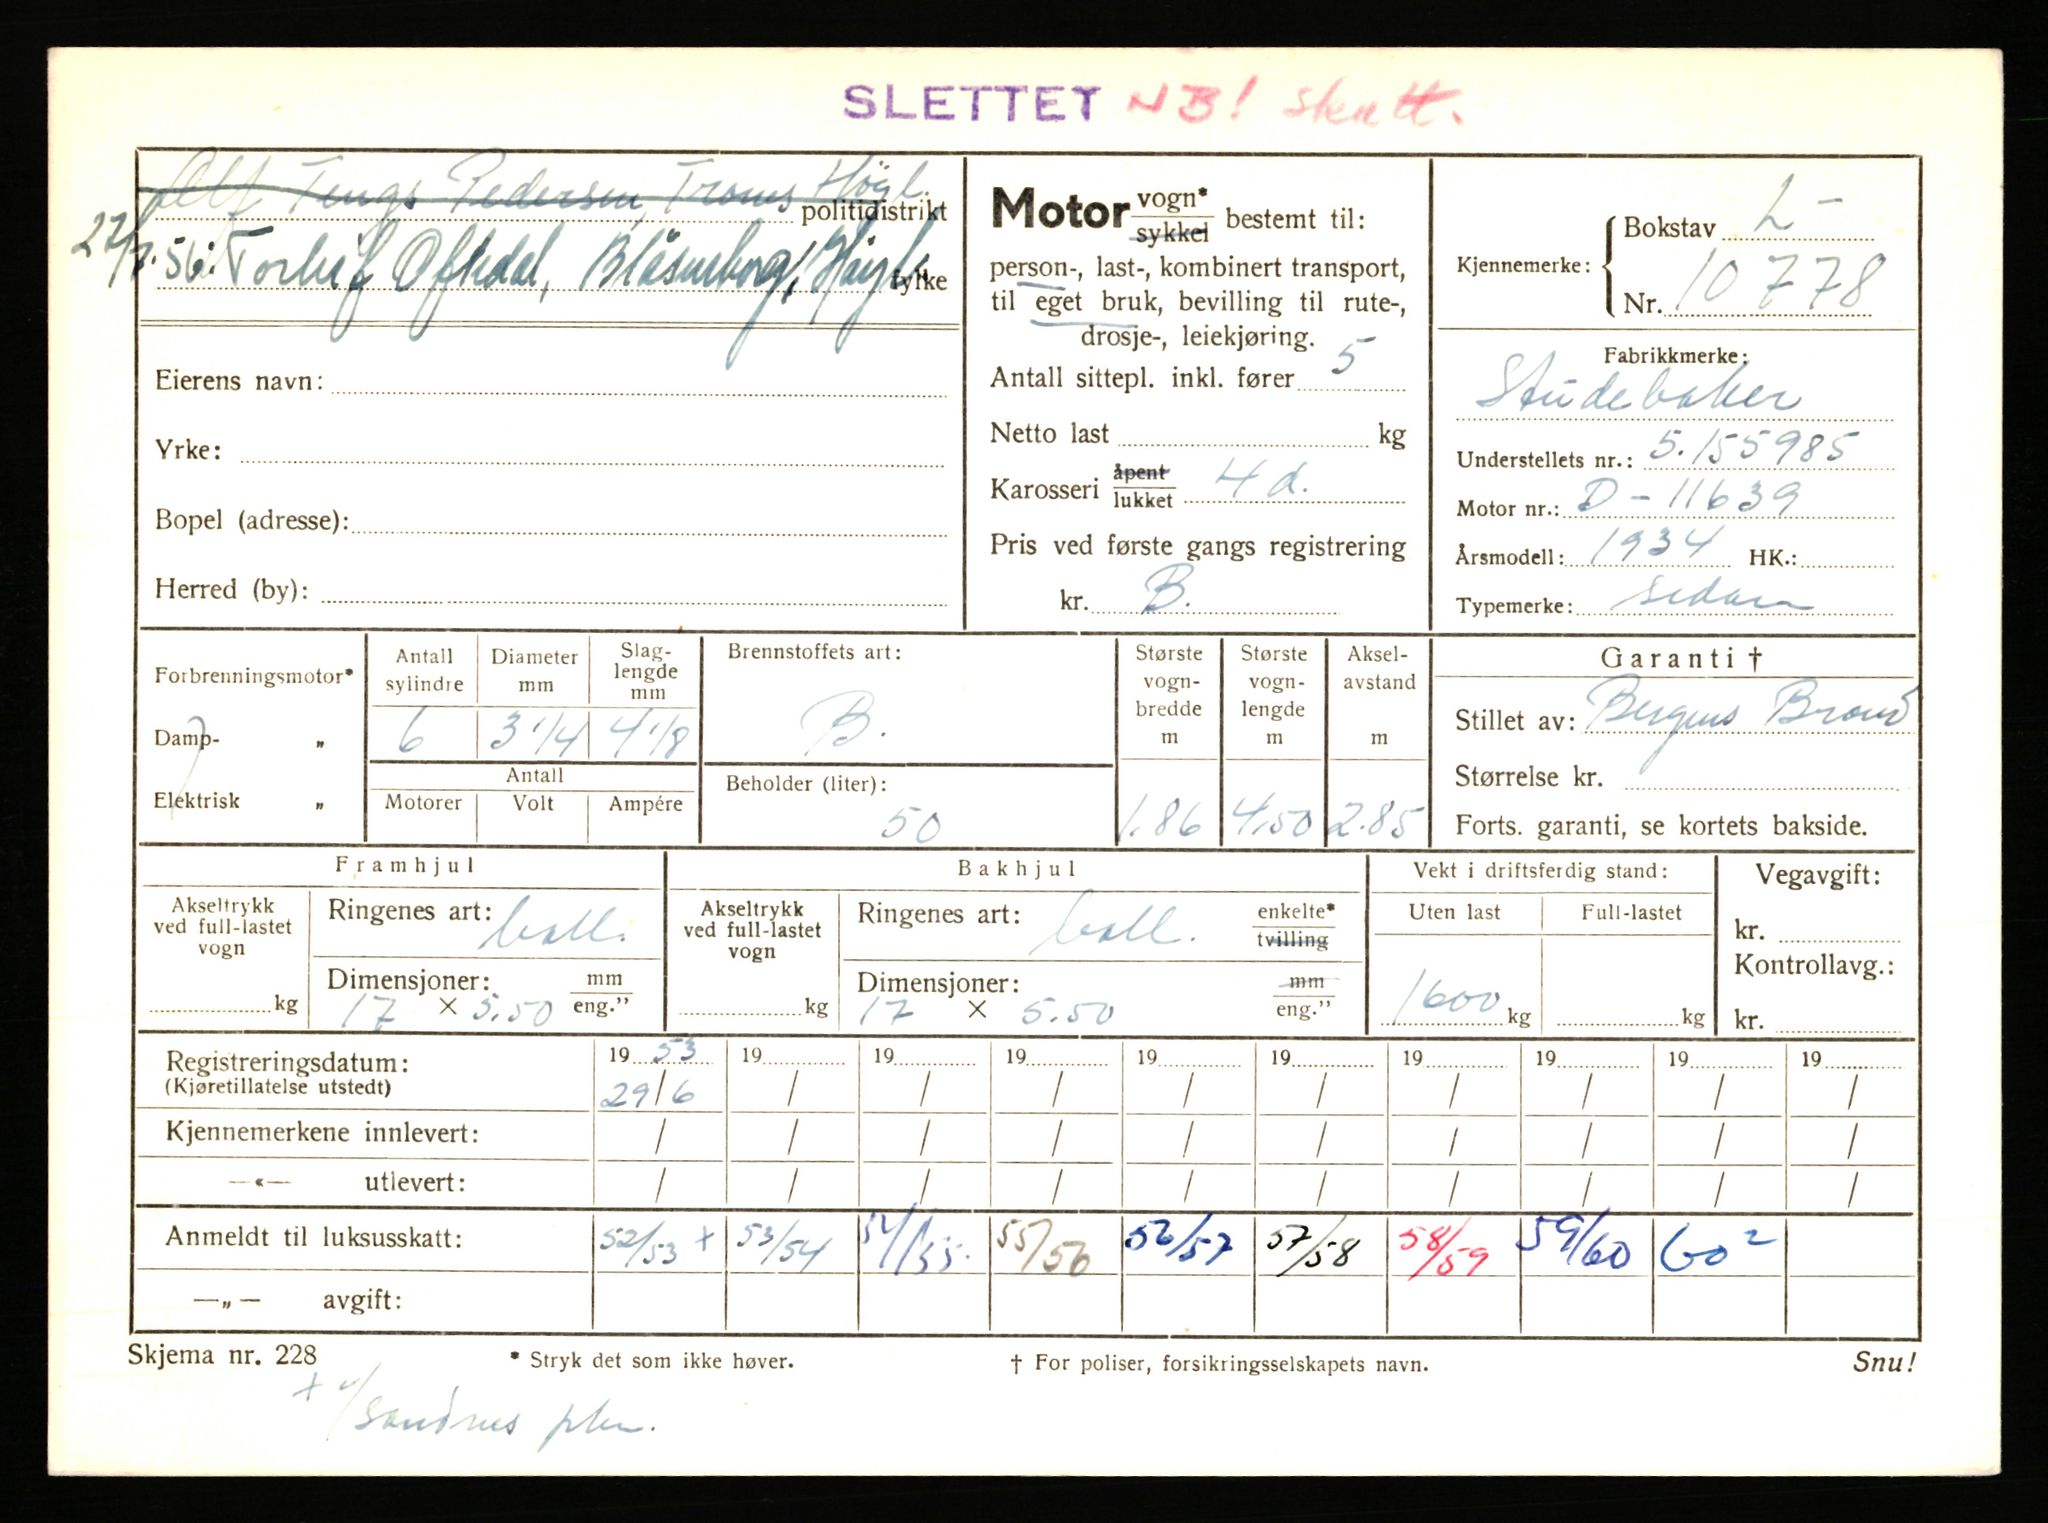 SLETTET NB! skatt.
Alf Tengs Pedersen, Høgl.
politidistrikt
22/7.56: Torleif Oftedal, Høgl.
fylke
Eierens navn:
Yrke:
Bopel (adresse):
Herred (by):
Motor vogn* sykkel bestemt til:
person-, last-, kombinert transport,
til eget bruk, bevilling til rute-,
drosje-, leiekjøring.
Antall sittepl. inkl. fører 5
Netto last kg
Karosseri åpent lukket 4 d.
Pris ved første gangs registrering
kr. B.
Kjennemerke: Bokstav L-
Nr. 10778
Fabrikkmerke:
Studebaker
Understellets nr.: 5.155985
Motor nr.: D-11639
Årsmodell: 1934 HK.:
Typemerke: sedan
Forbrenningsmotor*
Damp- „
Elektrisk „
Antall sylindre Diameter mm Slag-lengde mm
6 3 1/4 4 1/8
Antall
Motorer Volt Ampére
Brennstoffets art:
B.
Beholder (liter):
50
Største vogn-bredde m 1.86
Største vogn-lengde m 4.50
Aksel-avstand m 2.85
Garanti †
Stillet av: Bergens Brand
Størrelse kr.
Forts. garanti, se kortets bakside.
Framhjul
Akseltrykk ved full-lastet vogn kg
Ringenes art: ball.
Dimensjoner: mm eng."
17 × 5.50
Bakhjul
Akseltrykk ved full-lastet vogn kg
Ringenes art: ball. enkelte* tvilling
Dimensjoner: mm eng."
17 × 5.50
Vekt i driftsferdig stand:
Uten last Full-lastet
1600 kg kg
Vegavgift:
kr.
Kontrollavg.:
kr.
Registreringsdatum: 19 53 19 19 19 19 19 19 19 19 19
(Kjøretillatelse utstedt) 29/6 / / / / / / / / /
Kjennemerkene innlevert: / / / / / / / / / /
—«— utlevert: / / / / / / / / / /
Anmeldt til luksusskatt: 52/53 + 53/54 54/55. 55/56 56/57 57/58 58/59 59/60 60²
—„— avgift:
Skjema nr. 228 * Stryk det som ikke høver. † For poliser, forsikringsselskapets navn. Snu!
+ v/Sandnes